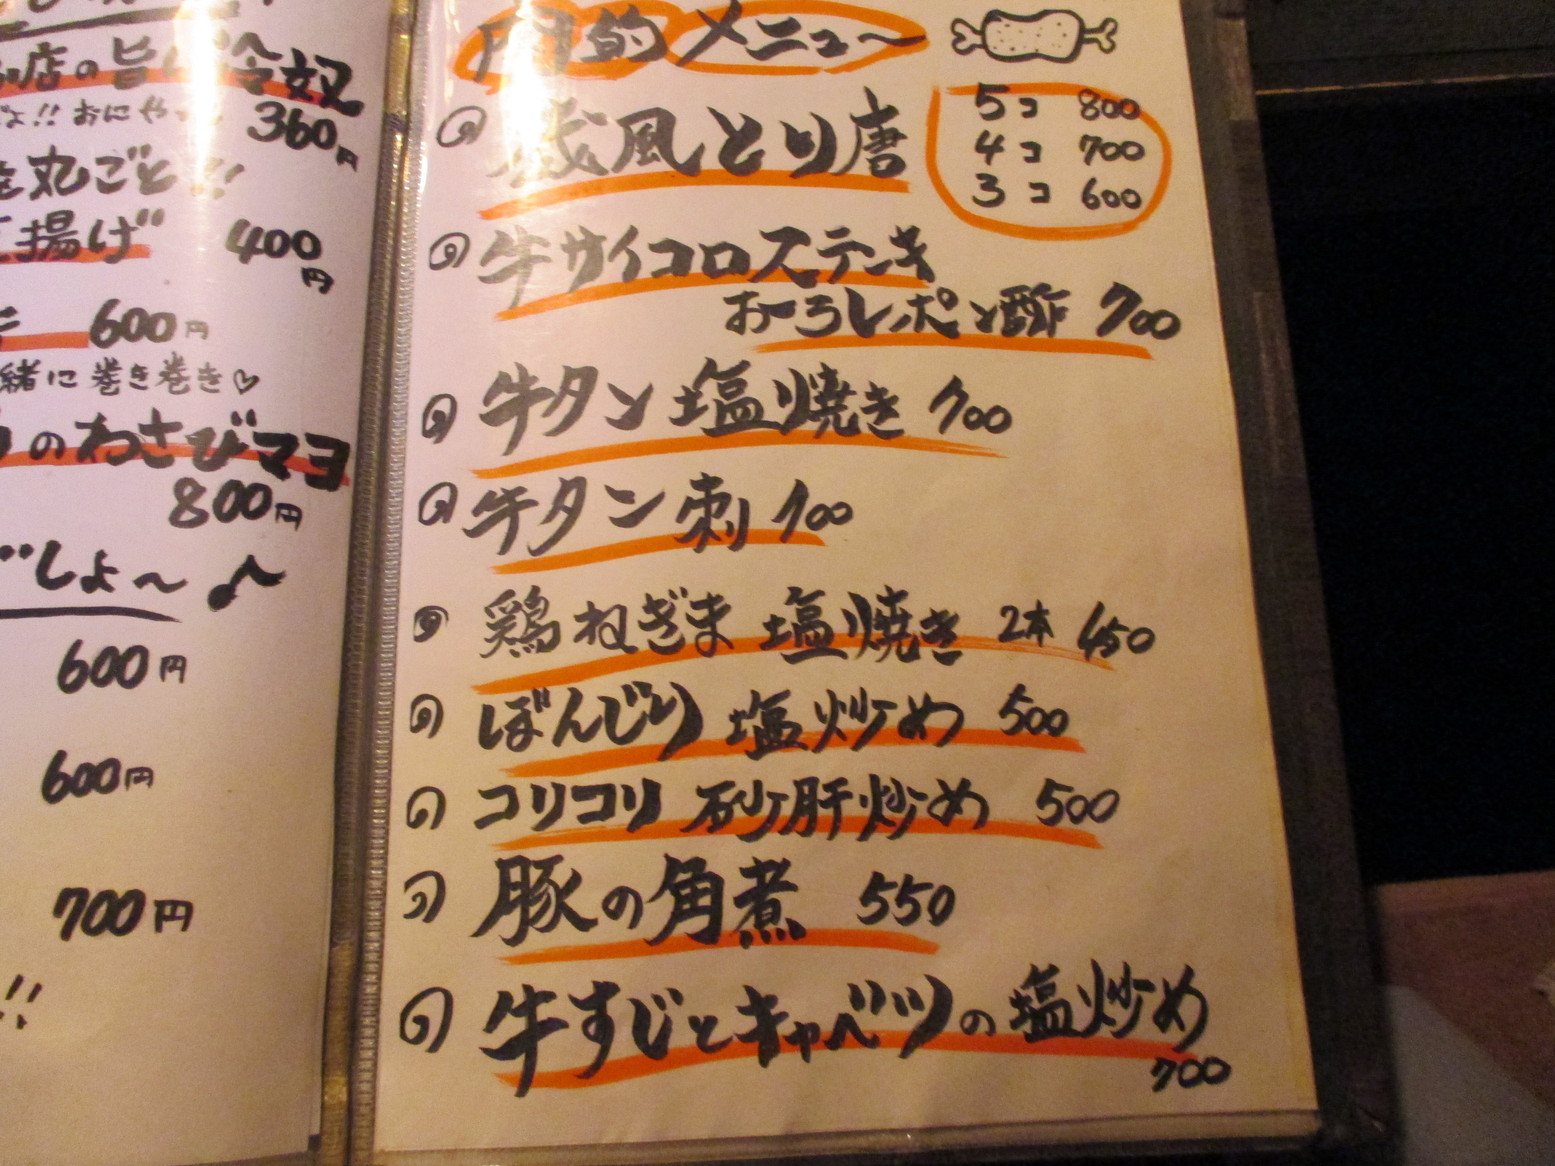 の旨
冷奴
360円
丸ごと!!
揚げ 400円
600円
緒に巻き巻き♡
のわさびマヨ
800円
しょ〜♪
600円
600円
700円
!!
肉的メニュ〜
風とり唐
5コ 800
4コ 700
3コ 600
牛サイコロステーキ
おーろしポン酢 700
牛タン塩焼き 700
牛タン刺 700
鶏ねぎま塩焼き 2本 450
ぼんじり塩炒め 500
コリコリ砂肝炒め 500
豚の角煮 550
牛すじとキャベツの塩炒め
700